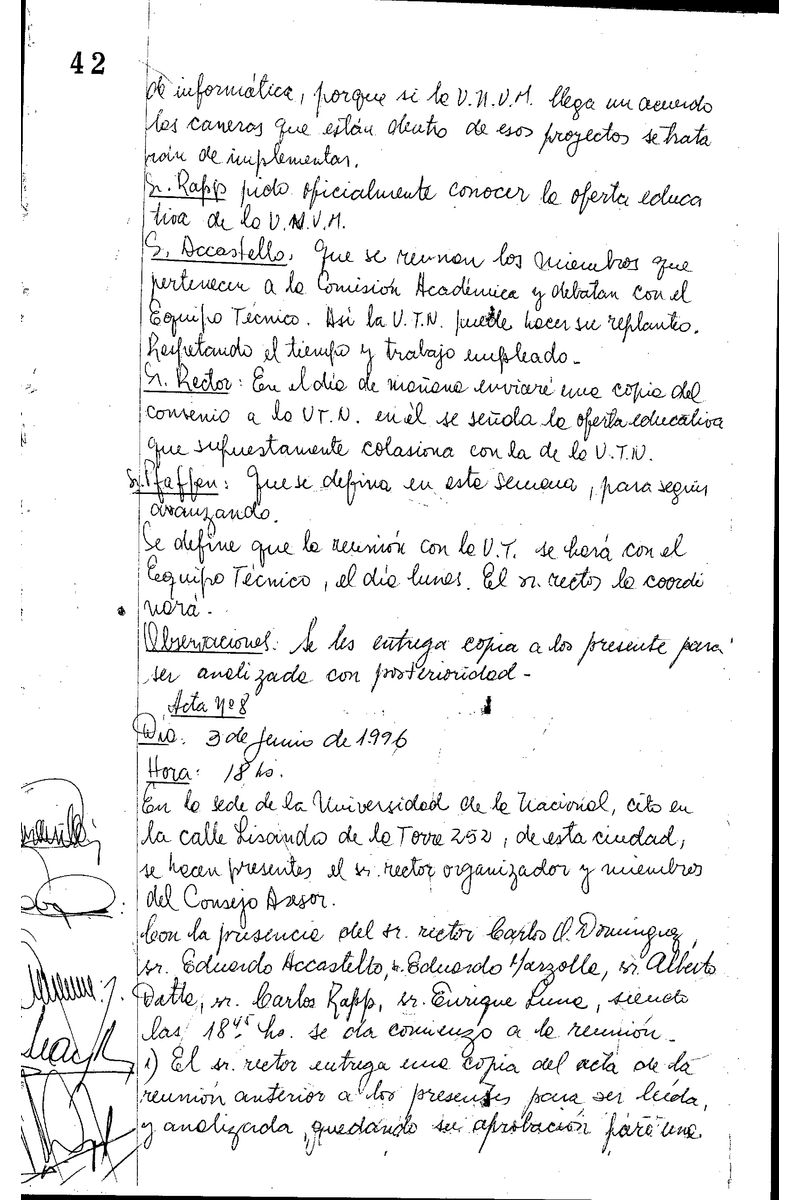 42
de informática, porque si la U.N.V.M. llega un acuerdo
las carreras que están dentro de esos proyectos se trata
rán de implementar.
Sr. Rapp pido oficialmente conocer la oferta educa
tiva de la U.N.V.M.
S. Accastello. Que se reunan los miembros que
pertenecen a la Comisión Académica y debatan con el
Equipo Técnico. Así la U.T.N. puede hacer su replanteo.
Respetando el tiempo y trabajo empleado.-
Sr. Rector: En el día de mañana enviaré una copia del
convenio a la UT.N. en él se señala la oferta educativa
que supuestamente colasiona con la de la U.T.N.
Sr. Pfaffen: Que se defina en esta semana, para seguir
avanzando.
Se define que la reunión con la U.T. se hará con el
Eequipo Técnico, el día lunes. El sr. rector lo coordi
nará.
Observaciones: Se les entrega copia a los presente para
ser analizada con posterioridad-
Acta Nº 8
Día: 3 de Junio de 1.996
Hora: 18 hs.
En la sede de la Universidad de la Nacional, cito en
la calle Lisandro de la Torre 252, de esta ciudad,
se hacen presentes el sr. rector organizador y miembros
del Consejo Asesor.
Con la presencia del sr. rector Carlos O. Dominguez,
sr. Eduardo Accastello, sr. Eduardo Marzolla, sr. Alberto
Datta, sr. Carlos Rapp, sr. Enrique Luna, siendo
las 18⁴⁵ hs. se da comienzo a la reunión.-
1) El sr. rector entrega una copia del acta de la
reunión anterior a los presentes para ser leída,
y analizada, quedando su aprobación para una